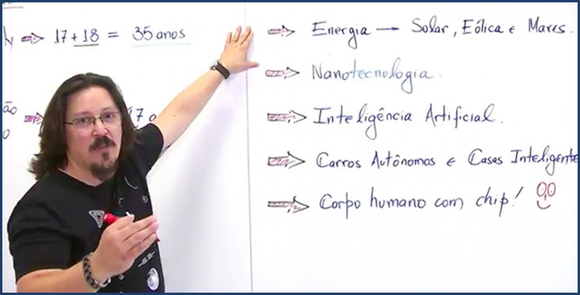 17+18 = 35 anos
ão
7 o
o
Energia → Solar, Eólica e Mares.
Nanotecnologia.
Inteligência Artificial.
Carros Autônomos e Casas Inteligente
Corpo humano com chip!